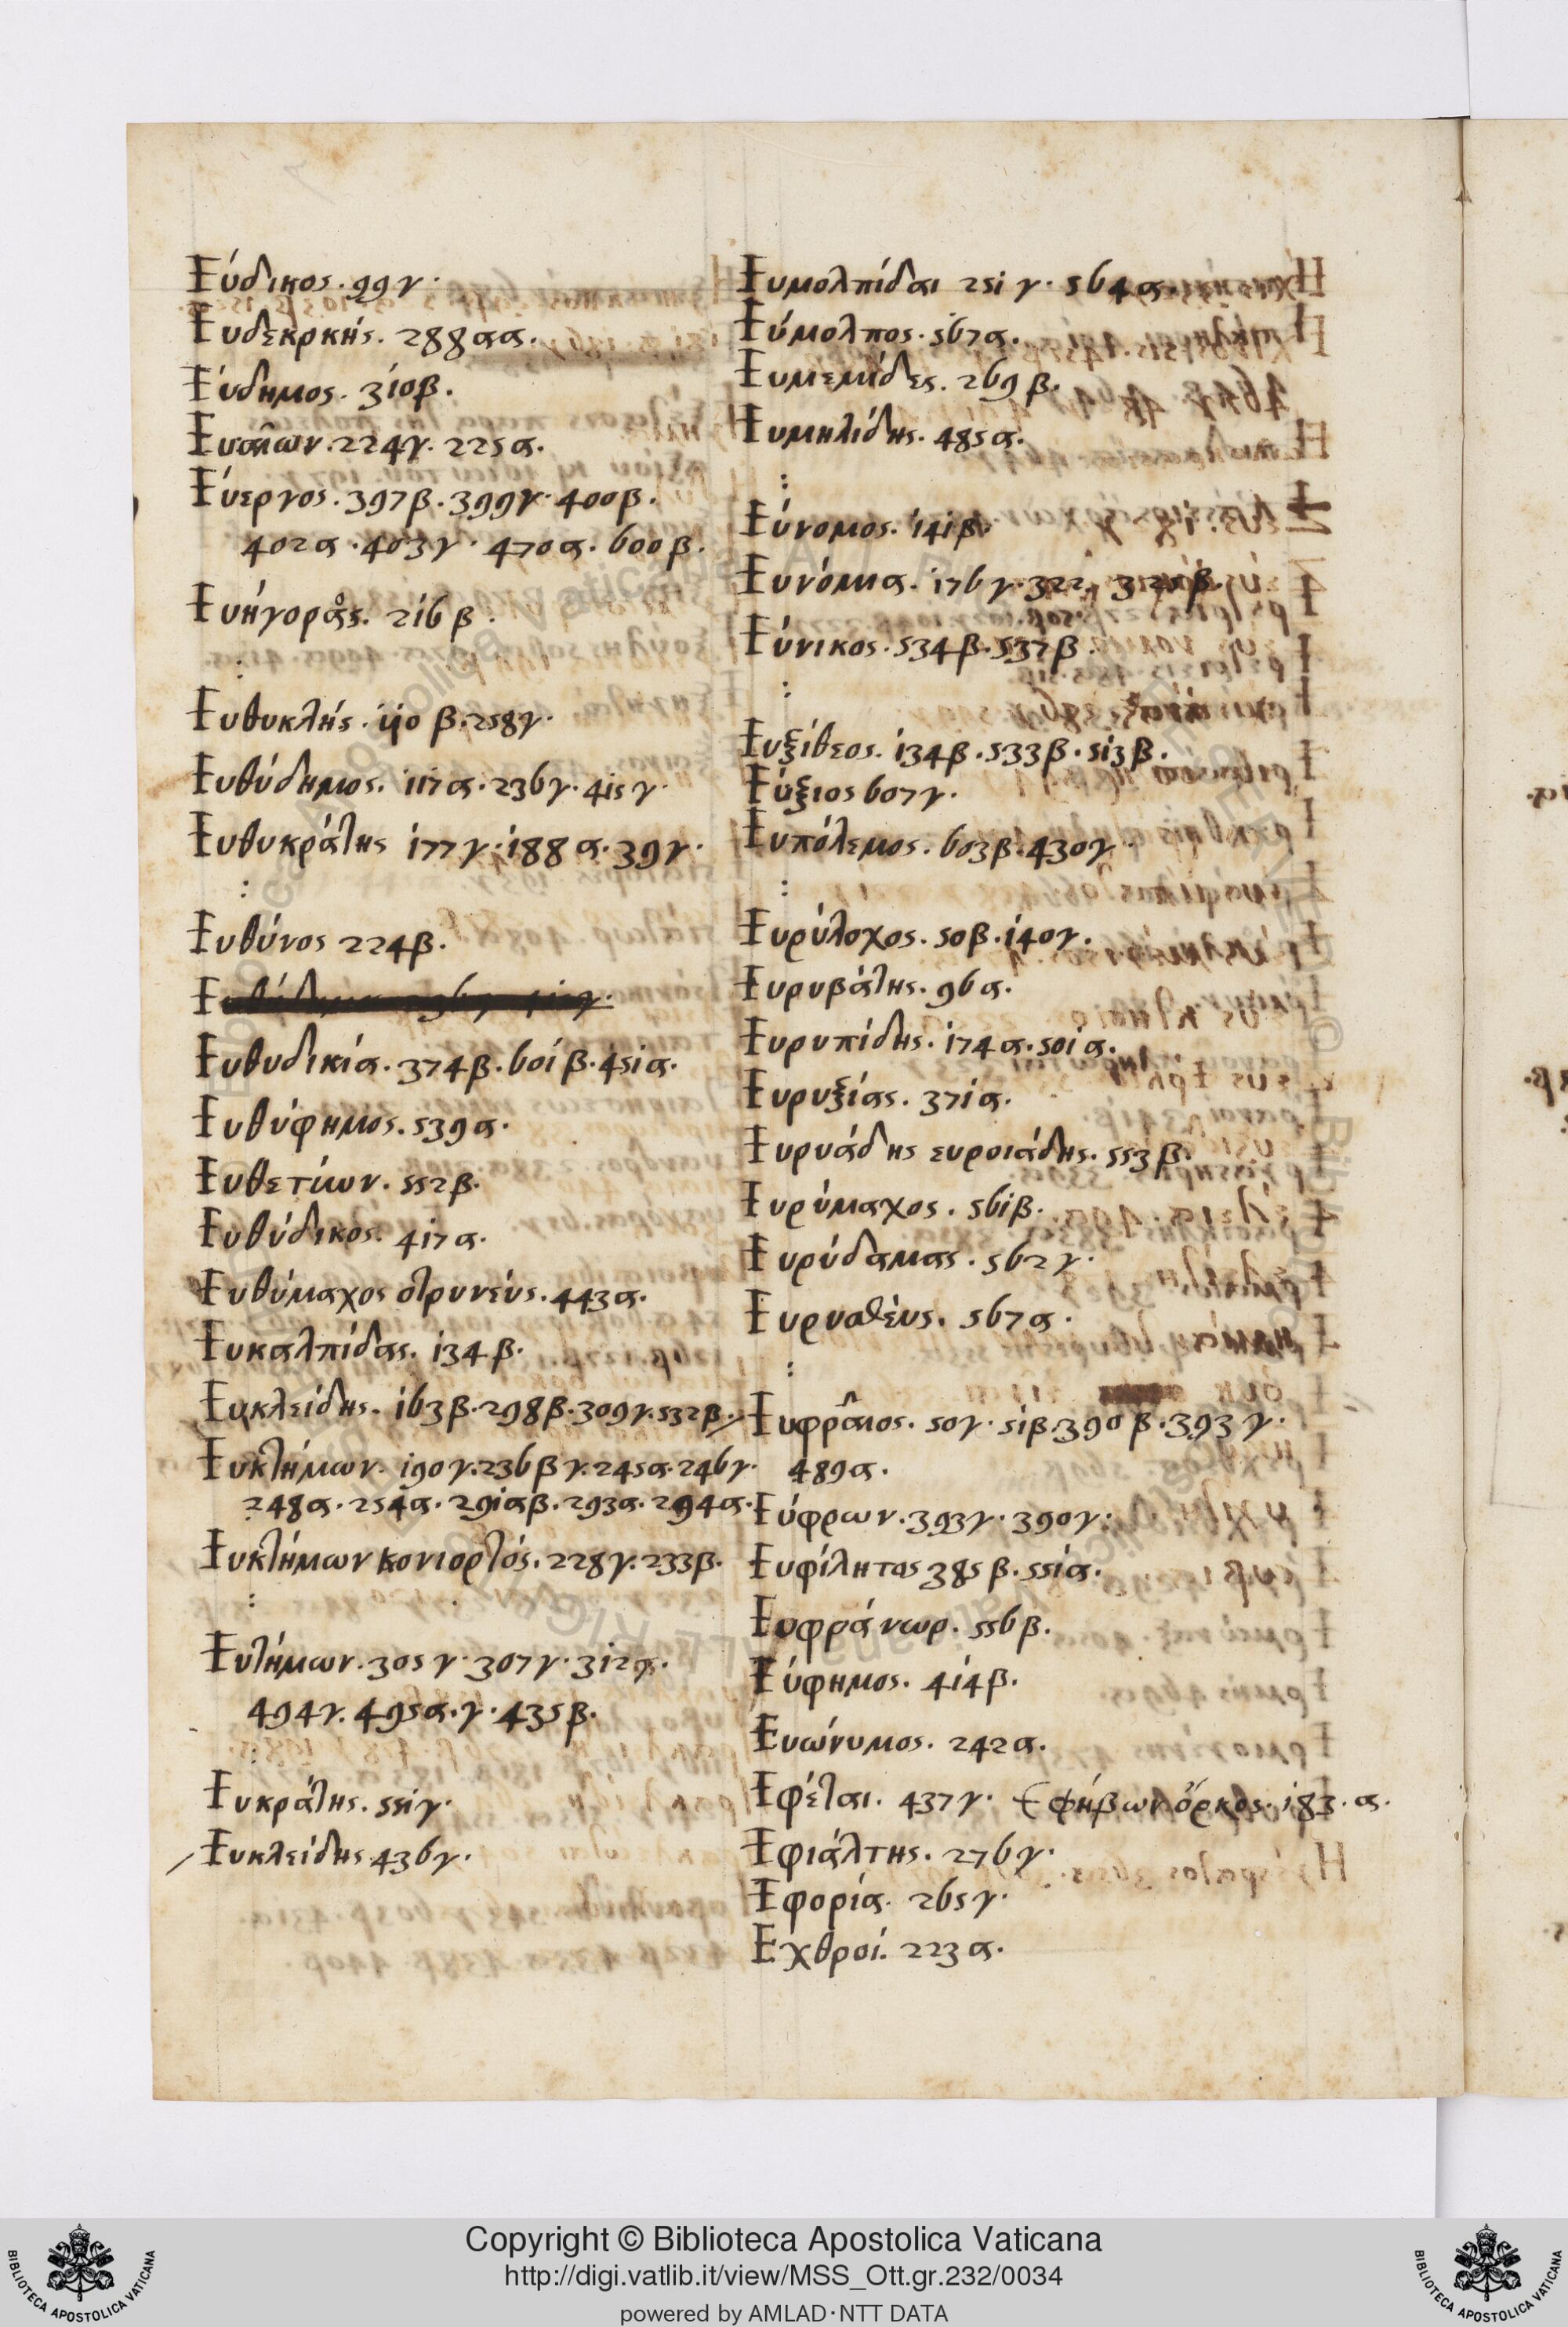 Εύδικος. 99γ.
Ευδερκής. 288αα.
Εύδημος. 310β.
Ευαίων. 224γ. 225α.
Εύεργος. 397β. 399γ. 400β.
402α. 403γ. 470α. 600β.
Ευήγορος. 216β.
:
Ευθυκλής. 110β. 258γ.
Ευθύδημος. 117α. 236γ. 415γ.
Ευθυκράτης 177γ. 188α. 39γ.
:
Ευθύνος 224β.
Ευθυδικία. 374β. 601β. 451α.
Ευθύφημος. 539α.
Ευθετίων. 552β.
Ευθύδικος. 417α.
Ευθύμαχος οτρυνεύς. 443α.
Ευκαλπίδας. 134β.
Ευκλείδης. 163β. 298β. 309γ. 532β.
Ευκτήμων. 190γ. 236βγ. 245α. 246γ.
248α. 254α. 291αβ. 293α. 294α.
Ευκτήμων κονιορτός. 228γ. 233β.
:
Ευτήμων. 305γ. 307γ. 312α.
494γ. 495α. γ. 435β.
:
Ευκράτης. 551γ.
Ευκλείδης. 436γ.
Ευμολπίδαι 251γ. 564α.
Εύμολπος. 567α.
Ευμενίδες. 269β.
Ευμηλίδης. 485α.
:
Εύνομος. 141β.
Ευνόμια. 176γ. 322.
Εύνικος. 534β. 537β.
:
Ευξίθεος. 134β. 533β. 513β.
Εύξιος 607γ.
Ευπόλεμος. 603β. 430γ.
:
Ευρύλοχος. 50β. 140γ.
Ευρυβάτης. 96α.
Ευρυπίδης. 174α. 501α.
Ευρυξίας. 371α.
Ευρυάδης ευροιάδης. 553β.
Ευρύμαχος. 561β.
Ευρύδαμας. 562γ.
Ευρυσθέυς. 567α.
:
Ευφραῖος. 50γ. 51β. 390β. 393γ.
489α.
Εύφρων. 393γ. 390γ.
Ευφίλητος 385β. 551α.
Ευφράνωρ. 556β.
Εύφημος. 414β.
Ευώνυμος. 242α.
Εφέται. 437γ. Εφήβων ὅρκος. 183.α.
Εφιάλτης. 276γ.
Εφορία. 265γ.
Εχθροί. 223α.
Copyright © Biblioteca Apostolica Vaticana
http://digi.vatlib.it/view/MSS_Ott.gr.232/0034
powered by AMLAD·NTT DATA
BIBLIOTECA APOSTOLICA VATICANA
BIBLIOTECA APOSTOLICA VATICANA